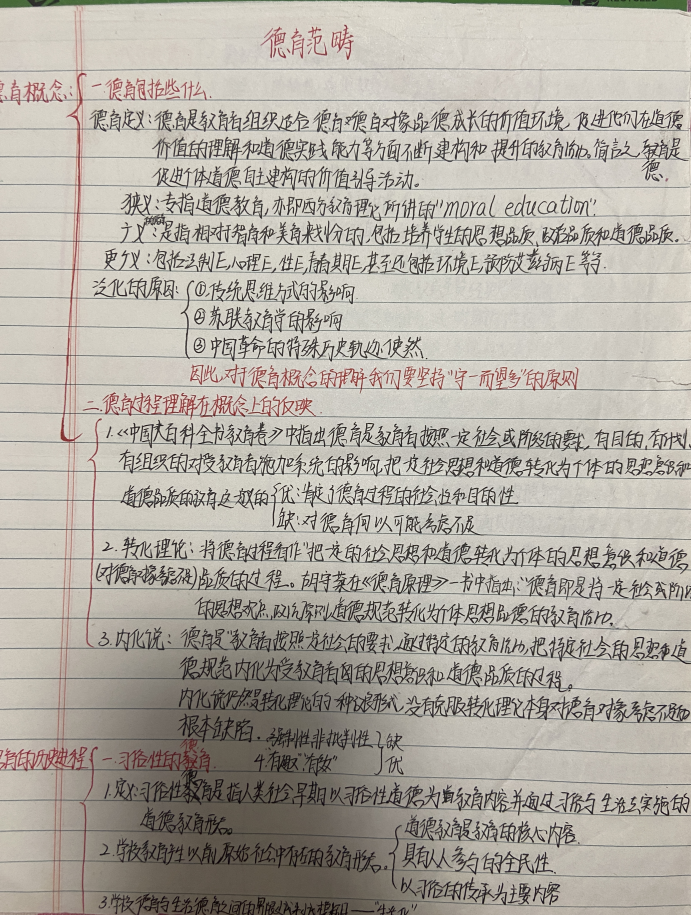 德育范畴
德育概念：
一.德育包括些什么
德育定义：德育是教育者组织适合德育对象品德成长的价值环境，促进他们在道德
价值的理解和道德实践能力等方面不断建构和提升的教育活动。简言之，教育是
德
促进个体道德自主建构的价值引导活动。
狭义：专指道德教育，亦即西方教育理论所讲的"moral education".
广义：是指相对智育和美育来划分的，包括培养学生的思想品质、政治品质和道德品质。
更广义：包括法制E，心理E，性E，青春期E，甚至还包括环境E，预防艾滋病E等
泛化的原因：①传统思维方式的影响
②苏联教育学的影响
③中国革命的特殊历史轨迹使然.
因此，对于德育概念的理解我们要坚持"守一而望多"的原则
二.德育过程理解在概念上的反映
1.《中国大百科全书教育卷》中指出德育是教育者按照一定社会或阶级的要求，有目的，有计划，
有组织的对受教育者施加系统的影响，把一定社会思想和道德转化为个体的思想意识和
道德品质的教育 优：肯定了德育过程的社会性和目的性
缺：对德育何以可能考虑不足
2.转化理论：将德育过程看作"把一定的社会思想和道德转化为个体的思想意识和道德
(对德育对象考虑不足)品质的过程。胡守棻在《德育原理》一书中指出："德育即是将一定社会或阶级
的思想观点，政治原则，道德规范转化为个体思想品德的教育活动.
3.内化说：德育是"教育者按照一定社会的要求，通过特定的教育活动，把特定社会的思想和道
德规范内化为受教育者的思想意识和道德品质的过程。
内化说仍然是转化理论的一种形式，没有克服转化理论本身对德育对象考虑不足的
根本缺陷. 3.强制性，非批判性 缺
优
育的历史进程
一.习俗性的德育.
1.定义：习俗性德育是指人类社会早期以习俗性道德为教育内容并通过习俗与生活去实施的
道德教育形态。
2.学校教育产生以前，原始社会中存在的教育形态。
道德教育是教育的核心内容
具有人人参与的全民性.
以习俗的传承为主要内容
3.学校德育与生活德育之间的